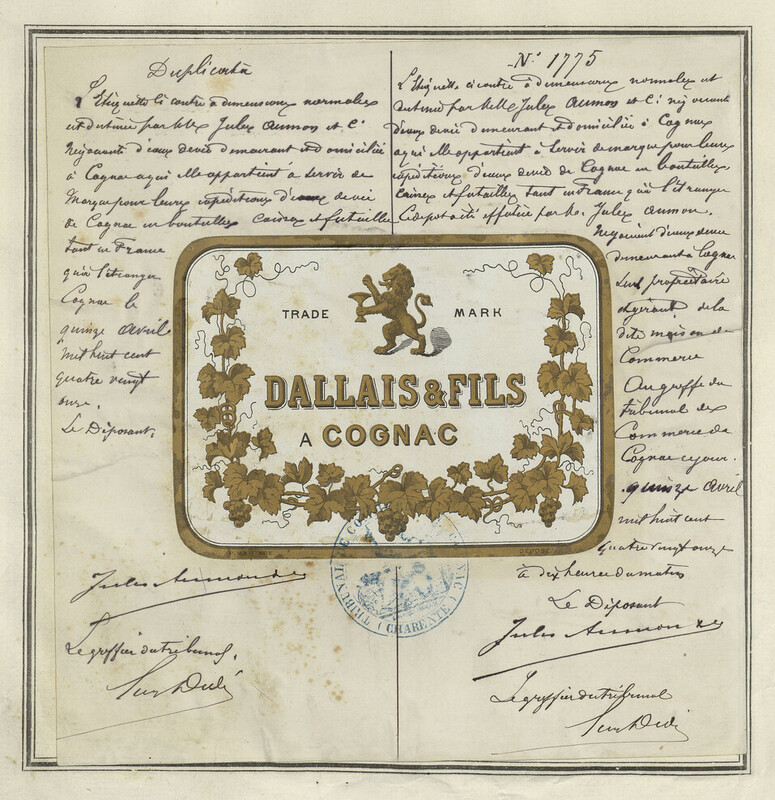 Duplicata
L'Etiquette ci contre à dimensions normales
est destinée par MM Jules Aumon et Cie
Négociants d'eaux de vie demeurant et domiciliés
à Cognac à qui elle appartient à servir de
Marque pour leurs expéditions d'eaux de vie
de Cognac en bouteilles caisses et futailles
tant en France
qu'à l'étranger
Cognac le
quinze avril
mil huit cent
quatre vingt
onze.
Le Déposant.
Jules Aumon
Le greffier du tribunal.
No 1775
L'Etiquette ci contre à dimensions normales est
destinée par MM Jules Aumon et Cie négociants
d'eaux de vie demeurant et domiciliés à Cognac
à qui elle appartient à servir de marque pour leurs
expéditions d'eaux de vie de Cognac en bouteilles,
caisses et futailles tant en France qu'à l'étranger
Ce dépôt a été effectué par M. Jules Aumon.
Négociant d'eaux de vie
demeurant à Cognac
seul propriétaire
et gérant de la
dite maison de
Commerce
Au greffe du
tribunal de
Commerce de
Cognac ce jour.
quinze avril
mil huit cent
quatre vingt onze
à dix heures du matin
Le Déposant
Jules Aumon
Le greffier du tribunal
TRADE MARK
DALLAIS & FILS
A COGNAC
DÉPOSÉ
TRIBUNAL DE COMMERCE
(CHARENTE)